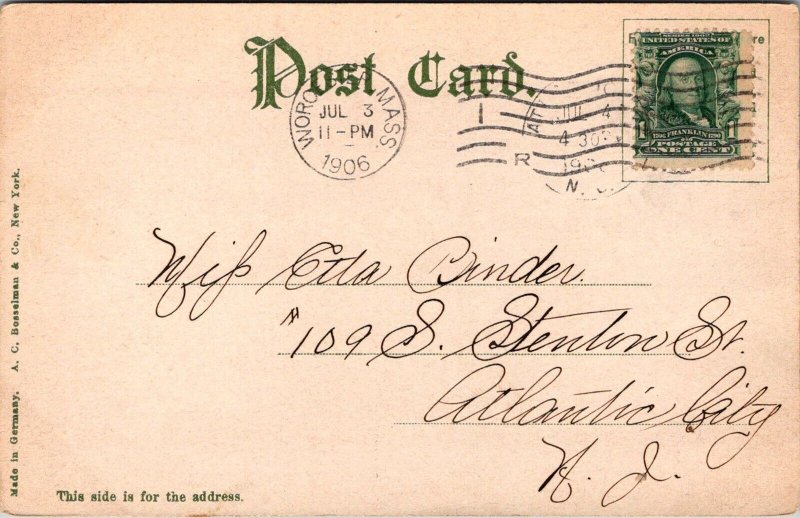 Post Card.
WORCESTER, MASS.
JUL 3
11-PM
1906
1
R
JUL 4
4 30
N. J.
SERIES 1902
UNITED STATES OF
AMERICA
1706 FRANKLIN 1790
POSTAGE
1 ONE CENT 1
Miss Etta Binder.
#109 S. Stenton St.
Atlantic City
N. J.
This side is for the address.
Made in Germany. A. C. Bosselman & Co., New York.